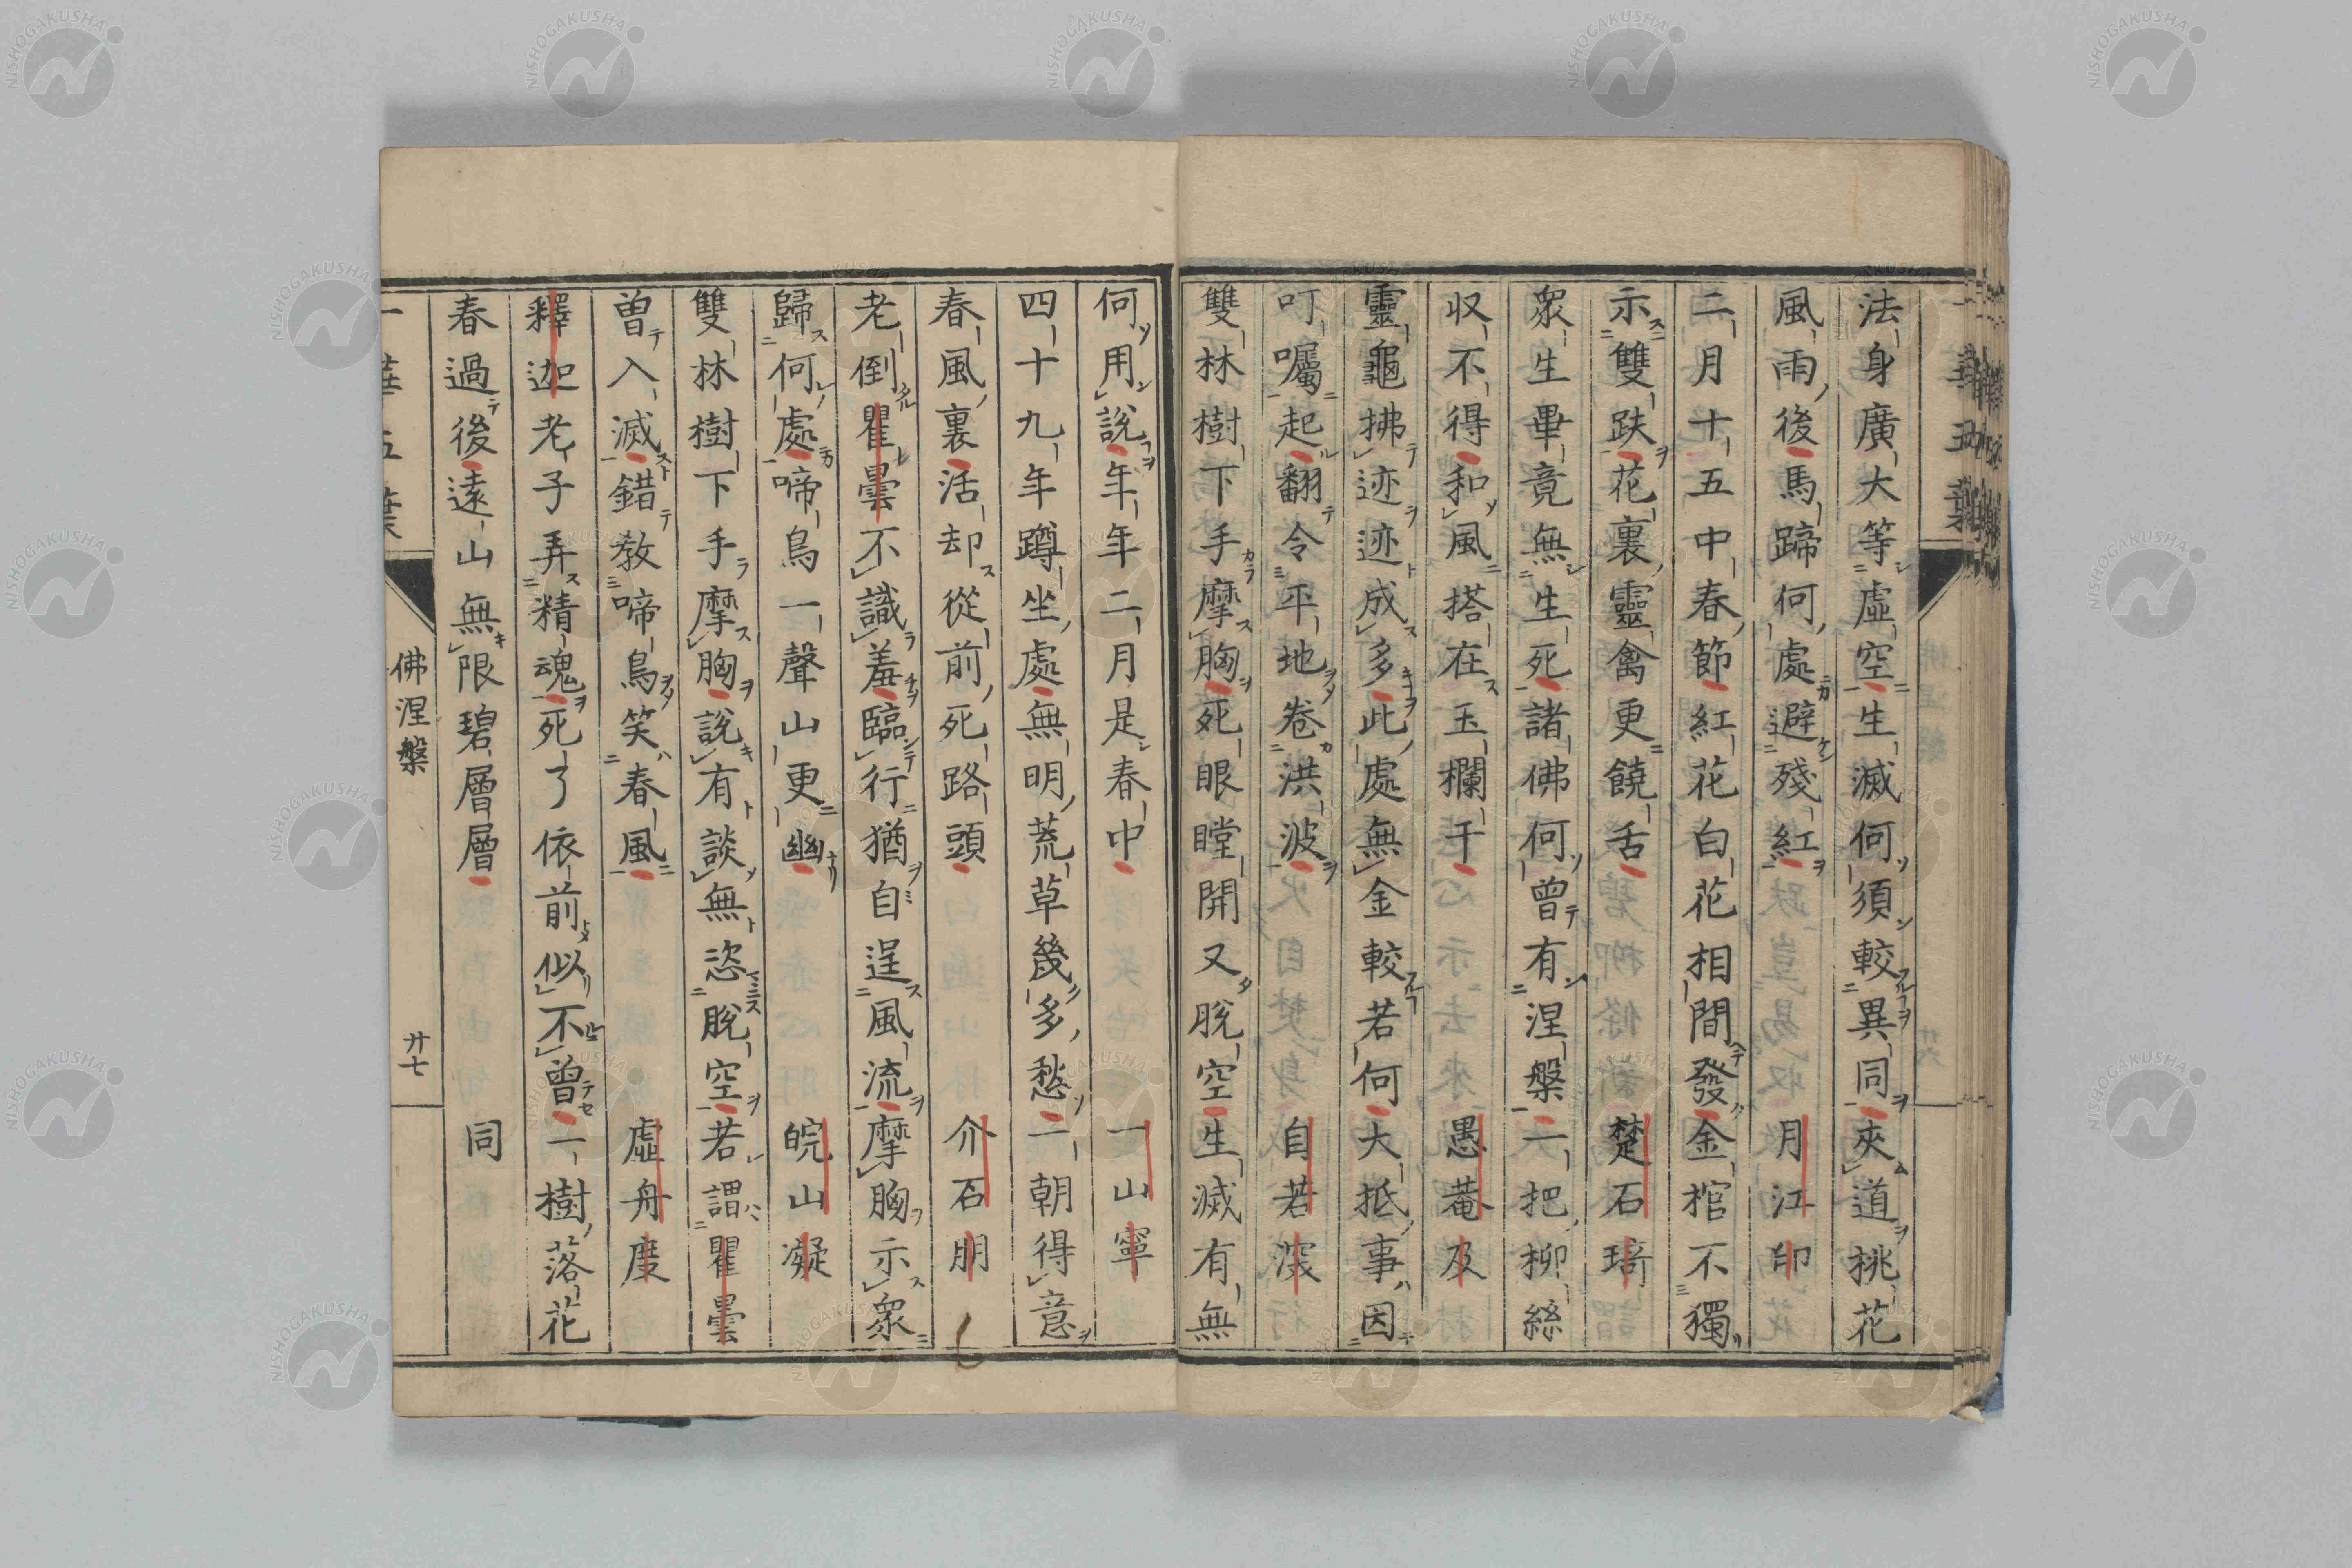 法身廣大等虛空生滅何須較異同夾道桃花
風雨後馬蹄何處避殘紅　月江印
二月十五中春節紅花白花相間發金棺不獨
示雙趺花裏靈禽更饒舌　楚石琦
眾生畢竟無生死諸佛何曾有涅槃一把柳絲
収不得和風搭在玉欄干　愚菴及
靈龜拂迹迹成多此處無金較若何大抵事因
叮囑起翻令平地卷洪波　自若深
雙林樹下手摩胸死眼瞠開又脫空生滅有無
何用說年年二月是春中　一山寧
四十九年蹲坐處無明荒草幾多愁一朝得意
春風裏活却從前死路頭　介石朋
老倒瞿曇不識羞臨行猶自逞風流摩胸示眾
歸何處啼鳥一聲山更幽　皖山凝
雙林樹下手摩胸說有談無恣脫空若謂瞿曇
曾入滅錯教啼鳥笑春風　虛舟度
釋迦老子弄精魂死了依前似不曾一樹落花
春過後遠山無限碧層層　同
一華五葉　佛涅槃　廿七